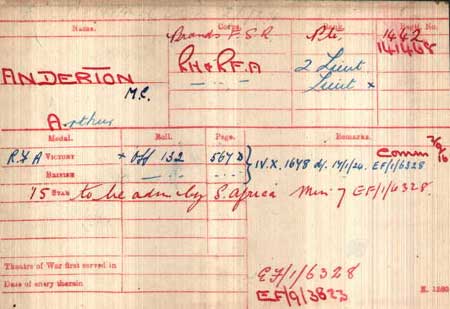 Name. Corps. Rank. Regtl. No.
Brands F.S.R. Pte. 1442
141468
ANDERTON RH & RFA 2 Lieut
M.C. Lieut x
Arthur
Medal. Roll. Page. Remarks.
Comm
RFA VICTORY x Off 132 567 D IV.X. 1678 d/. 17/1/24. EF/1/6328
BRITISH
15 STAR to be adm by S. Africa Min 7 EF/1/6328.
Theatre of War first served in
Date of entry therein
EF/1/6328
EF/9/3823
K. 1380